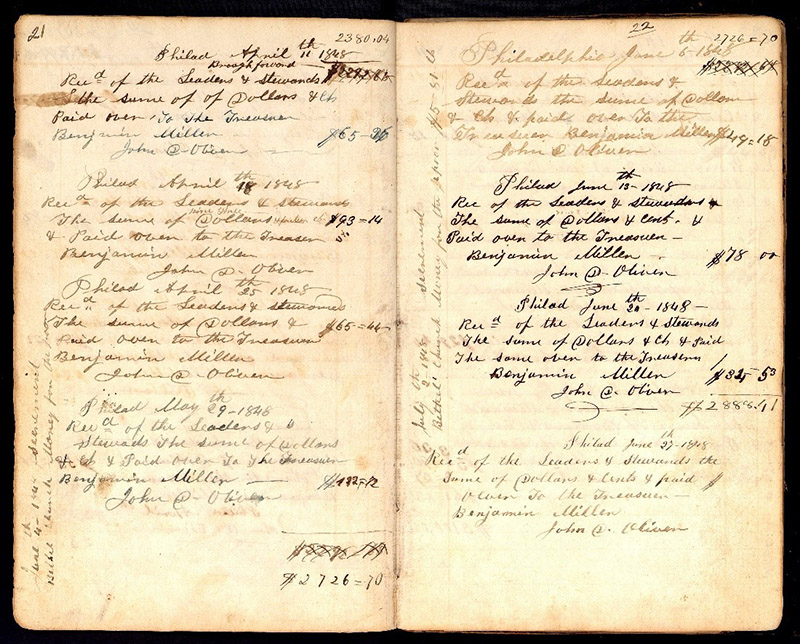 21
2380,04
Philad April 11th 1848
Brough forword
Recd of the Leaders & Stewands
the sume of of Dollars & Ch
Paid over To The Treasuer
Benjamin Millen $65-26
John C. Oliver
Philad April 18th 1848
Recd of the Leaders & Stewards
The sume of Dollars $93=14
& Paid over to the Treasuer
Benjamin Millen
John C. Oliver
Philad April 25th 1848
Recd of the Leaders & stewards
The sume of Dollars & $65=44
Paid over to the Treasuer
Benjamin Millen
John C. Oliven
Philad May 29th-1848
Recd of the Leaders &
Stewads The sume of Dollans
& Ch & Paid over To The Treasuer
Benjamin Millen $122=12
John C. Oliven
$2726=70
June 4th-1848 Secrement
Bethel Church Money for the poor
22
2726=70
Philadelphia June 6th-1848
Recd of the Leaders &
Stewards the sume of Dollars
& Ch & paid over To the
Treasuer Benjamin Millen $49=18
John C. Oliven
Philad June 13th-1848
Rec of the Leaders & Stewardss &
The sume of Dollars & Cent. &
Paid over to the Treasuer-
Benjamin Millen - $78 00
John C. Oliven
Philad June 20th-1848-
Recd of the Leaders & Stewands
The sume of Dollars & Ch & Paid
The same over to the Treasurer
Benjamin Millen $32-53
John C. Oliven
$2888.41
Philad June 27th-1848
Recd of the Leaders & Stewands the
Sume of Dollars & Cents & paid $
over To the Treasuer-
Benjamin Millen
John C. Oliven
July 2-1848 Secrement
Bethel Church Money for the poor $5 81 ch